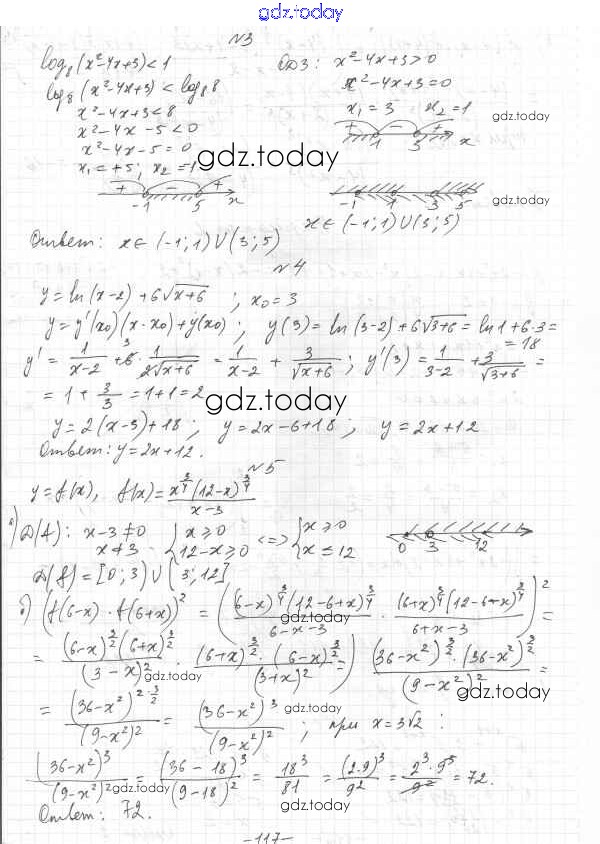 gdz.today
N3
log₈(x²-4x+3)<1   ОДЗ: x²-4x+3>0
log₈(x²-4x+3)<log₈8   x²-4x+3=0
x²-4x+3<8   x₁=3   x₂=1
x²-4x-5<0   + - +   gdz.today
x²-4x-5=0   1   3   x
x₁=+5; x₂=-1   gdz.today
+ - +   -1   5   x   -1   1   3   5
x∈(-1;1)∪(3;5)   gdz.today
Ответ: x∈(-1;1)∪(3;5)
N4
y=ln(x-2)+6√(x+6) ; x₀=3
y=y'(x₀)(x-x₀)+y(x₀) ; y(3)=ln(3-2)+6√(3+6)=ln1+6·3=
=18
y'=1/(x-2)+6·1/(2√(x+6))=1/(x-2)+3/√(x+6) ; y'(3)=1/(3-2)+3/√(3+6)=
=1+3/3=1+1=2   gdz.today
y=2(x-3)+18; y=2x-6+18; y=2x+12
Ответ: y=2x+12.
N5
y=f(x), f(x)=x^(3/4)(12-x)^(3/4)/(x-3)
D(f): x-3≠0   {x≥0   <=>   {x≥0
x≠3   {12-x≥0   {x≤12   0   3   12
D(f)=[0;3)∪(3;12]
б) (f(6-x)·f(6+x))²=((6-x)^(3/4)(12-6+x)^(3/4)/(6-x-3)·(6+x)^(3/4)(12-6-x)^(3/4)/(6+x-3))²=
gdz.today
=(6-x)^(3/2)(6+x)^(3/2)/(3-x)²·(6+x)^(3/2)·(6-x)^(3/2)/(3+x)²=(36-x²)^(3/2)·(36-x²)^(3/2)/(9-x²)²=
gdz.today   gdz.today
=(36-x²)^(2·3/2)/(9-x²)²=(36-x²)³/(9-x²)² ; при x=3√2 :
gdz.today
(36-x²)³/(9-x²)²=(36-18)³/(9-18)²=18³/81=(2·9)³/9²=2³·9³/9²=72.
gdz.today   gdz.today
Ответ: 72.
gdz.today
-117-